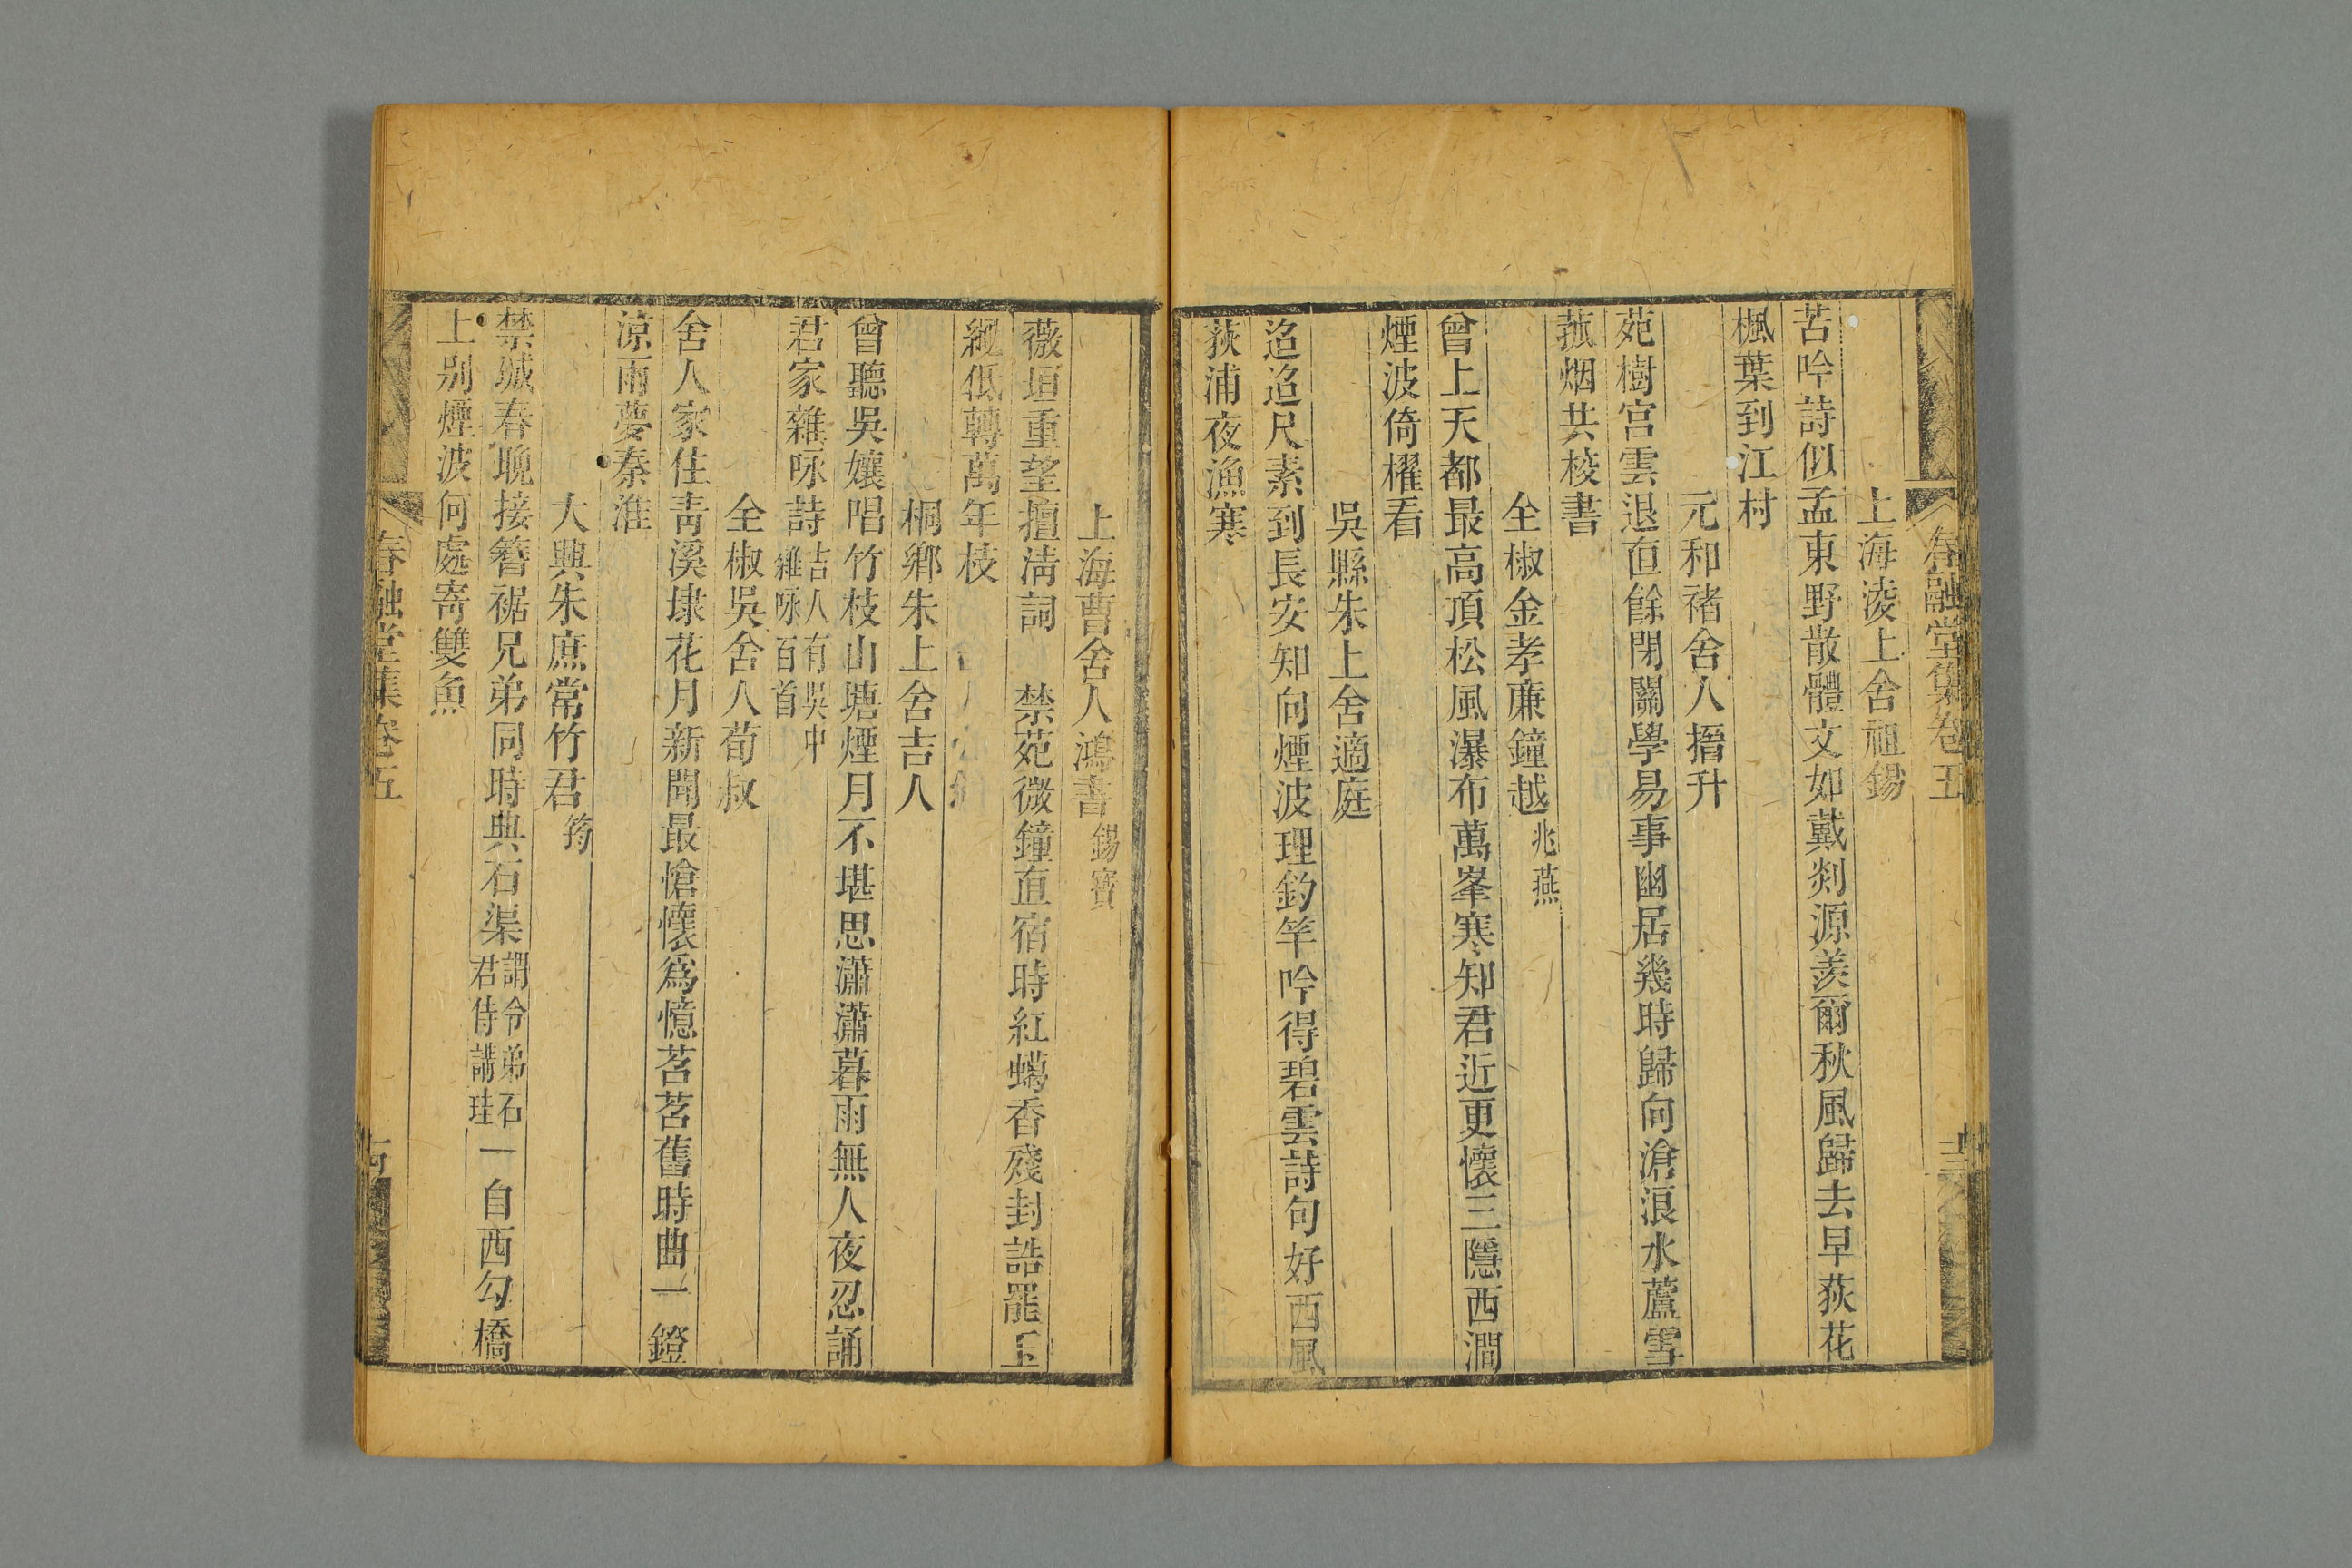 春融堂集卷五
上海淩上舍祖錫
苦吟詩似孟東野散體文如戴剡源羨爾秋風歸去早荻花
楓葉到江村
元和褚舍人搢升
苑樹宫雲退直餘閉關學易事幽居幾時歸向滄浪水蘆雪
菰烟共校書
全椒金孝廉鐘越兆燕
曾上天都最高頂松風瀑布萬峯寒知君近更懷三隱西澗
煙波倚櫂看
吳縣朱上舍適庭
迢迢尺素到長安知向煙波理釣竿吟得碧雲詩句好西風
荻浦夜漁寒
上海曹舍人鴻書錫寶
薇垣重望擅淸詞 禁苑微鐘直宿時紅蠟香殘封誥罷玉
繩低轉萬年枝
桐鄉朱上舍吉人
曾聽吳孃唱竹枝山塘煙月不堪思瀟瀟暮雨無人夜忍誦
君家雜咏詩吉人有吳中雜咏百首
全椒吳舍人荀叔
舍人家住靑溪埭花月新聞最愴懷爲憶茗茗舊時曲一鐙
涼雨夢秦淮
大興朱庶常竹君筠
禁城春晚接簪裾兄弟同時典石渠謂令弟石君侍講珪一自西勾橋
上别煙波何處寄雙魚
春融堂集卷五